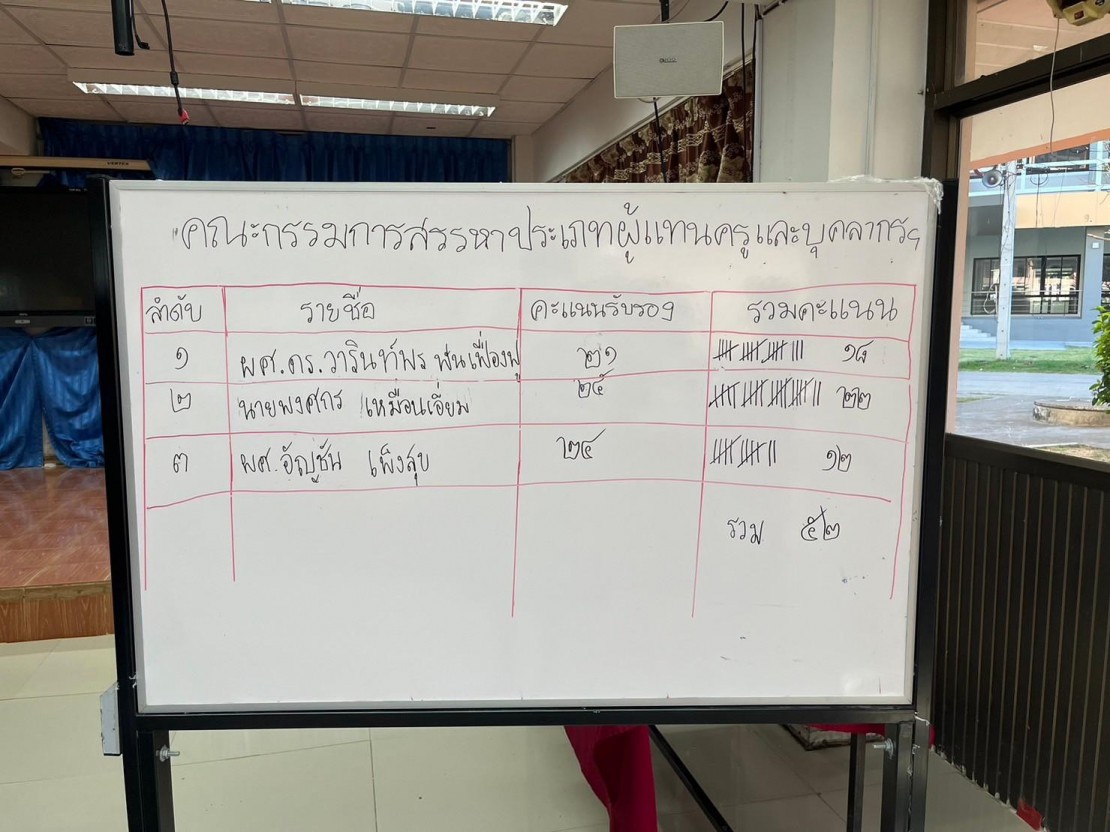 คณะกรรมการสรรหาประเภทผู้แทนครูและบุคลากรฯ
ลำดับ รายชื่อ คะแนนรับรอง รวมคะแนน
๑ ผศ.ดร.วารินท์พร ฟันเฟื่องฟู ๒๑ ๑๘
๒ นายพงศกร เหมือนเอี่ยม ๒๕ ๒๒
๓ ผศ.อัญชัน เพ็งสุข ๒๔ ๑๒
รวม ๕๒